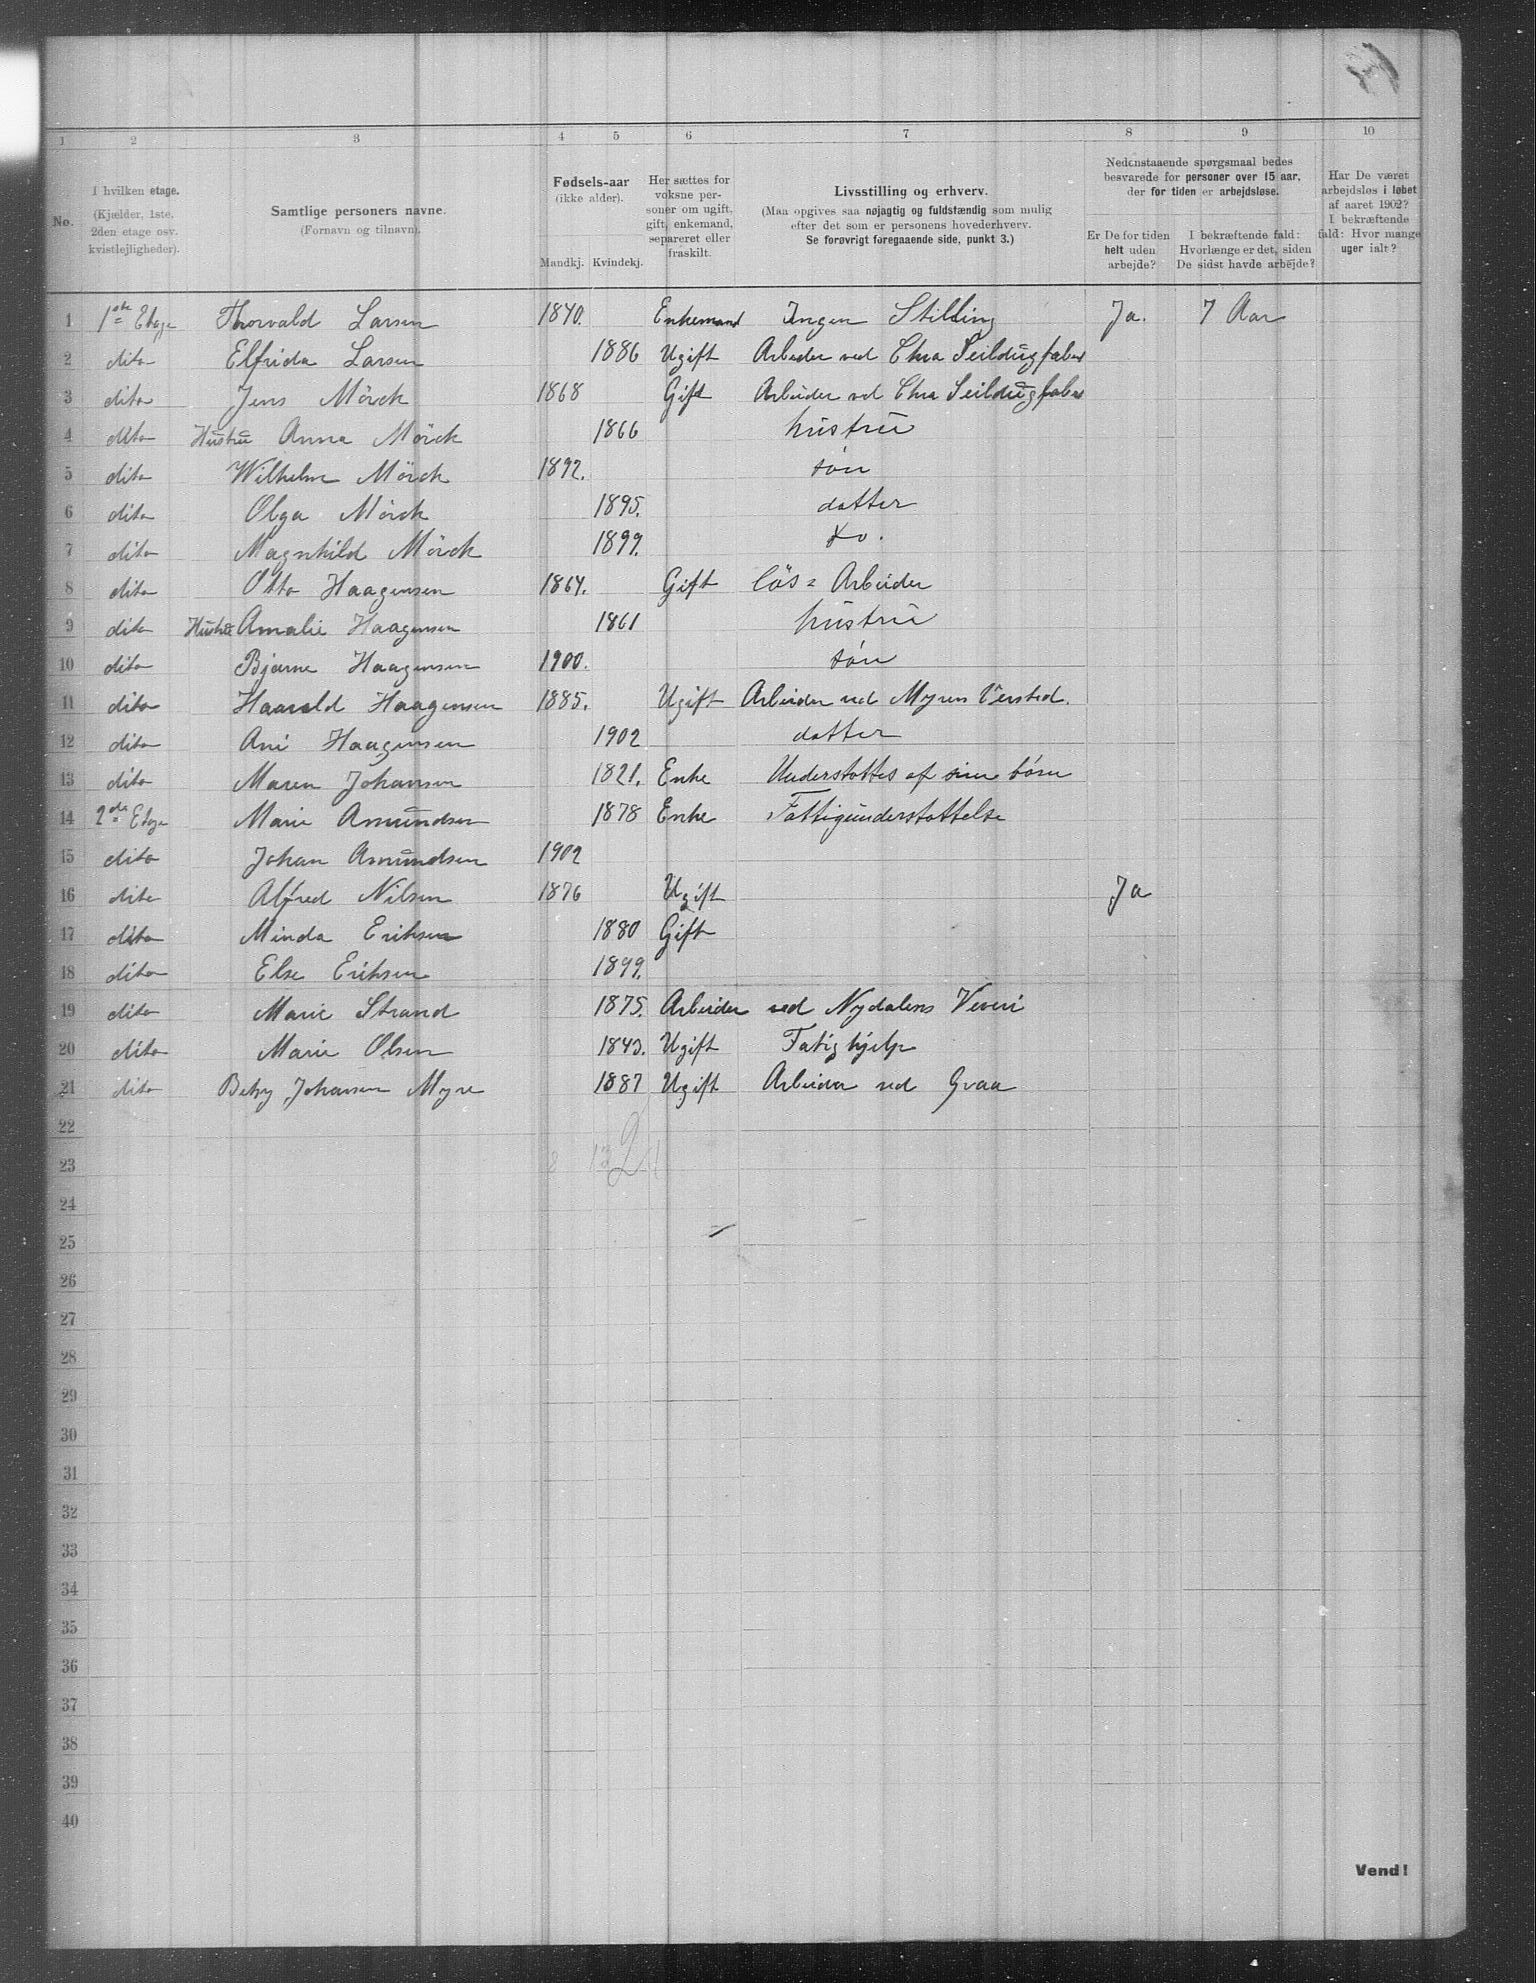 1 2 3 4 5 6 7 8 9 10
No.
I hvilken etage.
(Kjælder, 1ste,
2den etage osv.
kvistlejligheder).
Samtlige personers navne.
(Fornavn og tilnavn).
Fødsels-aar
(ikke alder).
Mandkj. Kvindekj.
Her sættes for
voksne per-
soner om ugift,
gift, enkemand,
separeret eller
fraskilt.
Livsstilling og erhverv.
(Maa opgives saa nøjagtig og fuldstændig som mulig
efter det som er personens hovederhverv.
Se forøvrigt foregaaende side, punkt 3.)
Nedenstaaende spørgsmaal bedes
besvarede for personer over 15 aar,
der for tiden er arbejdsløse.
Er De for tiden
helt uden
arbejde?
I bekræftende fald:
Hvorlænge er det, siden
De sidst havde arbejde?
Har De været
arbejdsløs i løbet
af aaret 1902?
I bekræftende
fald: Hvor mange
uger ialt?
1 1ste Etage Thorvald Larsen 1840. Enkemand Ingen Stilling Ja. 7 Aar
2 dito Elfrida Larsen 1886 Ugift Arbeider ved Chra Seildugfabr
3 dito Jens Mörck 1868 Gift Arbeider ved Chra Seildugfabr
4 dito Hustru Anna Mörck 1866 hustru
5 dito Wilhelm Mörck 1892. sön
6 dito Olga Mörck 1895. datter
7 dito Magnhild Mörck 1899. do.
8 dito Otto Haagensen 1864. Gift lös = Arbeider
9 dito Hustru Amalie Haagensen 1861 hustru
10 dito Bjarne Haagensen 1900. sön
11 dito Haarald Haagensen 1885. Ugift Arbeider ved Myrens Versted.
12 dito Ani Haagensen 1902 datter
13 dito Maren Johansen 1821. Enke Understottes af sine börn
14 2de Etage Marie Amundsen 1878 Enke Fattigunderstottelse
15 dito Johan Amundsen 1902
16 dito Alfred Nilsen 1876 Ugift Ja
17 dito Minda Eriksen 1880 Gift
18 dito Else Eriksen 1899.
19 dito Marie Strand 1875. Arbeider ved Nydalens Veveri
20 dito Marie Olsen 1843. Ugift Fatighjelp
21 dito Betzy Johansen Myre 1887 Ugift Arbeider ved Graa
22
23 8 13 21
24
25
26
27
28
29
30
31
32
33
34
35
36
37
38
39
40
Vend!